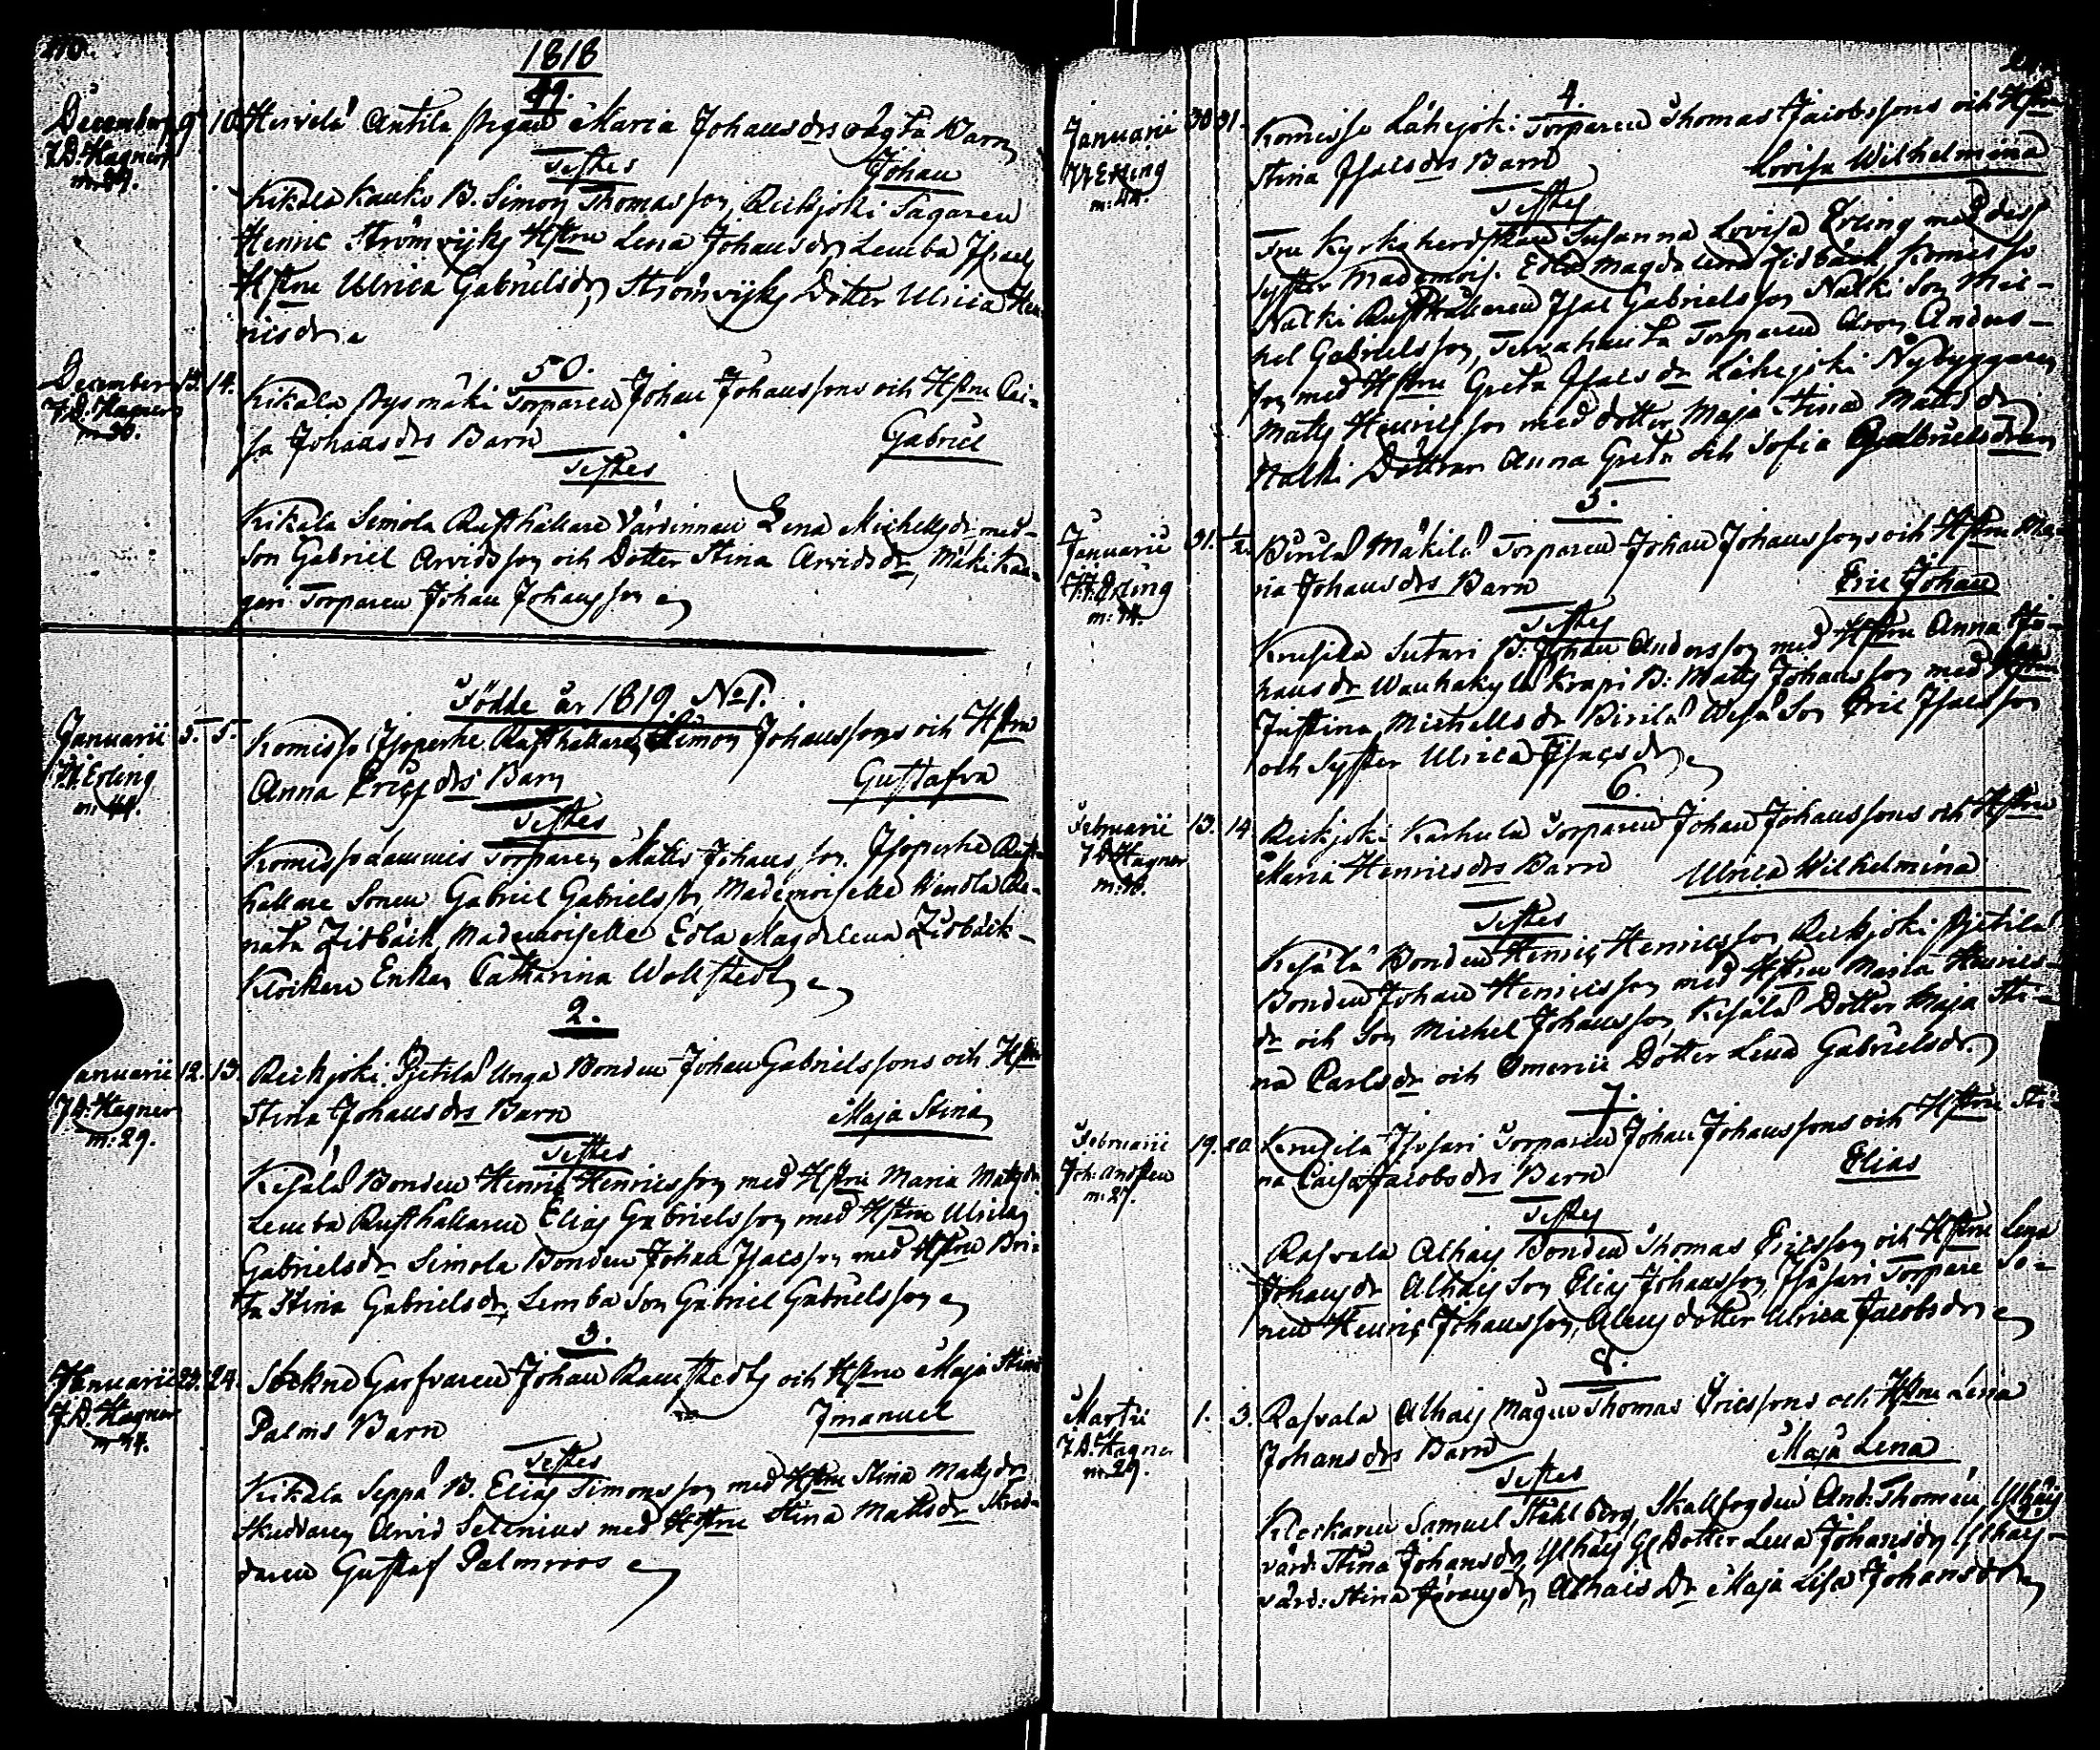 1818
49.
Decembr 9 10 Hirvelä Antila pigan Maria Johansdrs oägta Barn
J.D. Hagner
Testes Johan
Kikala Kauko B. Simon Thomasson, Reckjoki Sågaren
Henric Strömvijks Hstru Lena Johansdr, Lemba Isracs
Hstru Ulrica Gabrielsdr, Strömvijks Dotter Ulrica Hen-
ricsdr
50.
December 13. 14. Kikala Rysmäki Torparen Johan Johanssons och Hstru Cai-
J.D. Hagner
m. 30.
sa Johansdrs Barn Gabriel
Testes
Kikala Simola Rusthållare Värdinnan Lena Michelsdr med
Son Gabriel Arvidsson och Dotter Stina Arvidsdr, Mäkikan-
gari Torparen Johan Johansson
Födde år 1819 No 1.
Januarii 5. 5. Komisso Isoperhe Rusthållaren Simon Johanssons och Hstru
Erling
m: 41.
Anna Ericsdrs Barn Gustafva
Testes
Komisso Torparen Matts Johansson. Isoperhe Rust-
hållare Sonen Gabriel Gabrielsson, Mademoiselle Wendla Re-
nata Zidbäck, Mademoiselle Edla Magdelena Zidbäck
Klockare Enkan Catharina Wollstedt
2.
Januarii 12. 13. Reckjoki Pjetilä Unga Bonden Johan Gabrielssons och Hstru
J.D. Hagner
m: 29.
Stina Johansdrs Barn Maja Stina
Testes
Kesälä Bonden Henric Henricsson med Hstru Maria Mattsdr
Lemba Rusthållaren Elias Gabrielsson med Hstru Ulrica
Gabrielsdr Simola Bonden Johan Isacsson med Hstru Bri-
ta Stina Gabrielsdr, Lemba Son Gabriel Gabrielsson
3.
Januarii 23. 24. Sockne Garfvaren Johan Ramstedts och Hstru Maja Stina
J.D. Hagner
Palms Barn Imanuel
Testes
Kikala Seppä B. Elias Simonsson med Hstru Stina Mattsdr
Skreddaren Arvid Selenius med Hstru Stina Mattsdr Skred-
daren Gustaf Palmroos
4.
Januarii 30 31. Komisso Lähejoki Torparen Thomas Jacobssons och Hstru
Erling
m: 44.
Stina Isacsdrs Barn Lovisa Wilhelmina
Testes
Fru Kyrkoherdskan Susanna Lovisa Erling med dess
Syster Madmois. Edla Magdalena Zidbäck Komisso
Nalki Rusthållaren Isac Gabrielsson Nalki Son Mic-
hel Gabrielsson, Tervahauta Torparen Aron Anders-
son med Hstru Greta Isacsdr Lähejoki Nybyggaren
Matts Henricsson med dotter Maja Stina Mattsdr
Nalki Döttrar Anna Greta och Sofia Gabrielsdrar
5.
Januarii 31. 1/2. Pirilä Mäkilä Torparen Johan Johanssons och Hstru Ma-
Erling
ria Johansdrs Barn Eric Johan
Testes
Krusila Sutari B: Johan Andersson med Hstru Anna Jo-
hansdr Wanhakylä Krapi B: Matts Johansson med Hstru
Justina Michelsdr Pirilä Wesa Son Eric Isacsson
och Syster Ulrica Isacsdr
6.
Februarii 13. 14 Reckjoki Karhula Torparen Johan Johanssons och Hstru
J.D. Hagner
Maria Henricsdrs Barn Ulrica Wilhelmina
Testes
Kesälä Bonden Henric Henricsson, Reckjoki Pjetilä
Bonden Johan Henricsson med Hstru Maria Henrics-
dr och Son Michel Johansson Kesälä Dotter Maja Sti-
na Carlsdr och Dotter Lena Gabrielsdr.
7.
Februarii 19. 20 Krusila Torparen Johan Johanssons och Hstru Sti-
m: 27.
na Caisa Jacobsdrs Barn Elias
Testes
Rasvala Alhais Bonden Thomas Ericsson och Hstru Lena
Johansdr Alhais Son Elias Johansson, Torpare So-
nen Henric Johansson, dotter Ulrica Jacobsdr
8.
Martii 1. 3. Rasvala Alhais Mågen Thomas Ericssons och Hstru Lena
J.D. Hagner
m. 29.
Johansdrs Barn Maja Lena
Testes
Klockaren Samuel Ståhlberg, Skallfogden And: Thomén, Ylhäis
värd: Stina Johansdr, Ylhäis Dotter Lena Johansdr Ylhäis
värd: Stina Alhais Dr Maja Lisa Johansdr